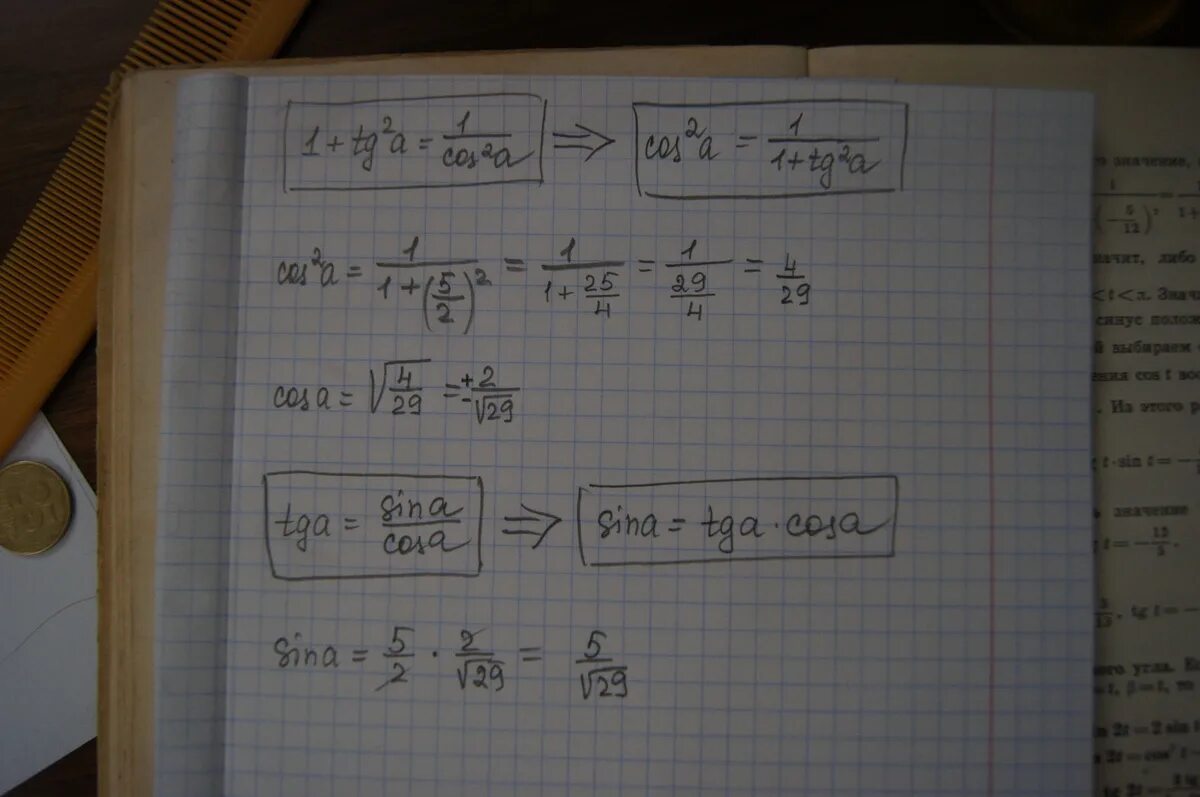 1 + tg²a = 1/cos²a ⇒ cos²a = 1/(1 + tg²a)
cos²a = 1/(1 + (5/2)²) = 1/(1 + 25/4) = 1/(29/4) = 4/29
cos a = √(4/29) = ± 2/√29
tg a = sin a/cos a ⇒ sin a = tg a · cos a
sin a = 5/2 · 2/√29 = 5/√29
значение,
значит, либо
< t < π. Знач
синус полож
й выбираем
ения cos t вос
. Из этого р
t · sin t = −
значение
t = −
, tg t = −
ного угла. Е
= t, β = t, то
2t = 2 sin t
2t = cos² t −
tg 2t =